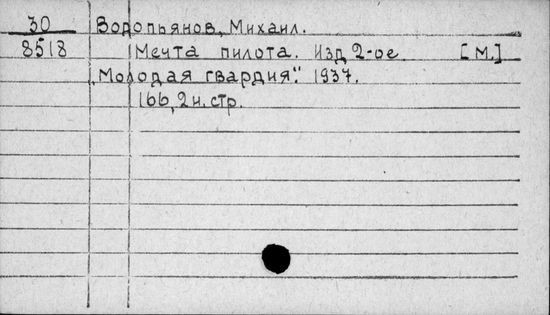 30 Водопьянов, Михаил.
8518 Мечта пилота. Изд 2-ое. [М.]
„Молодая гвардия“. 1937.
166, 2 н. стр.